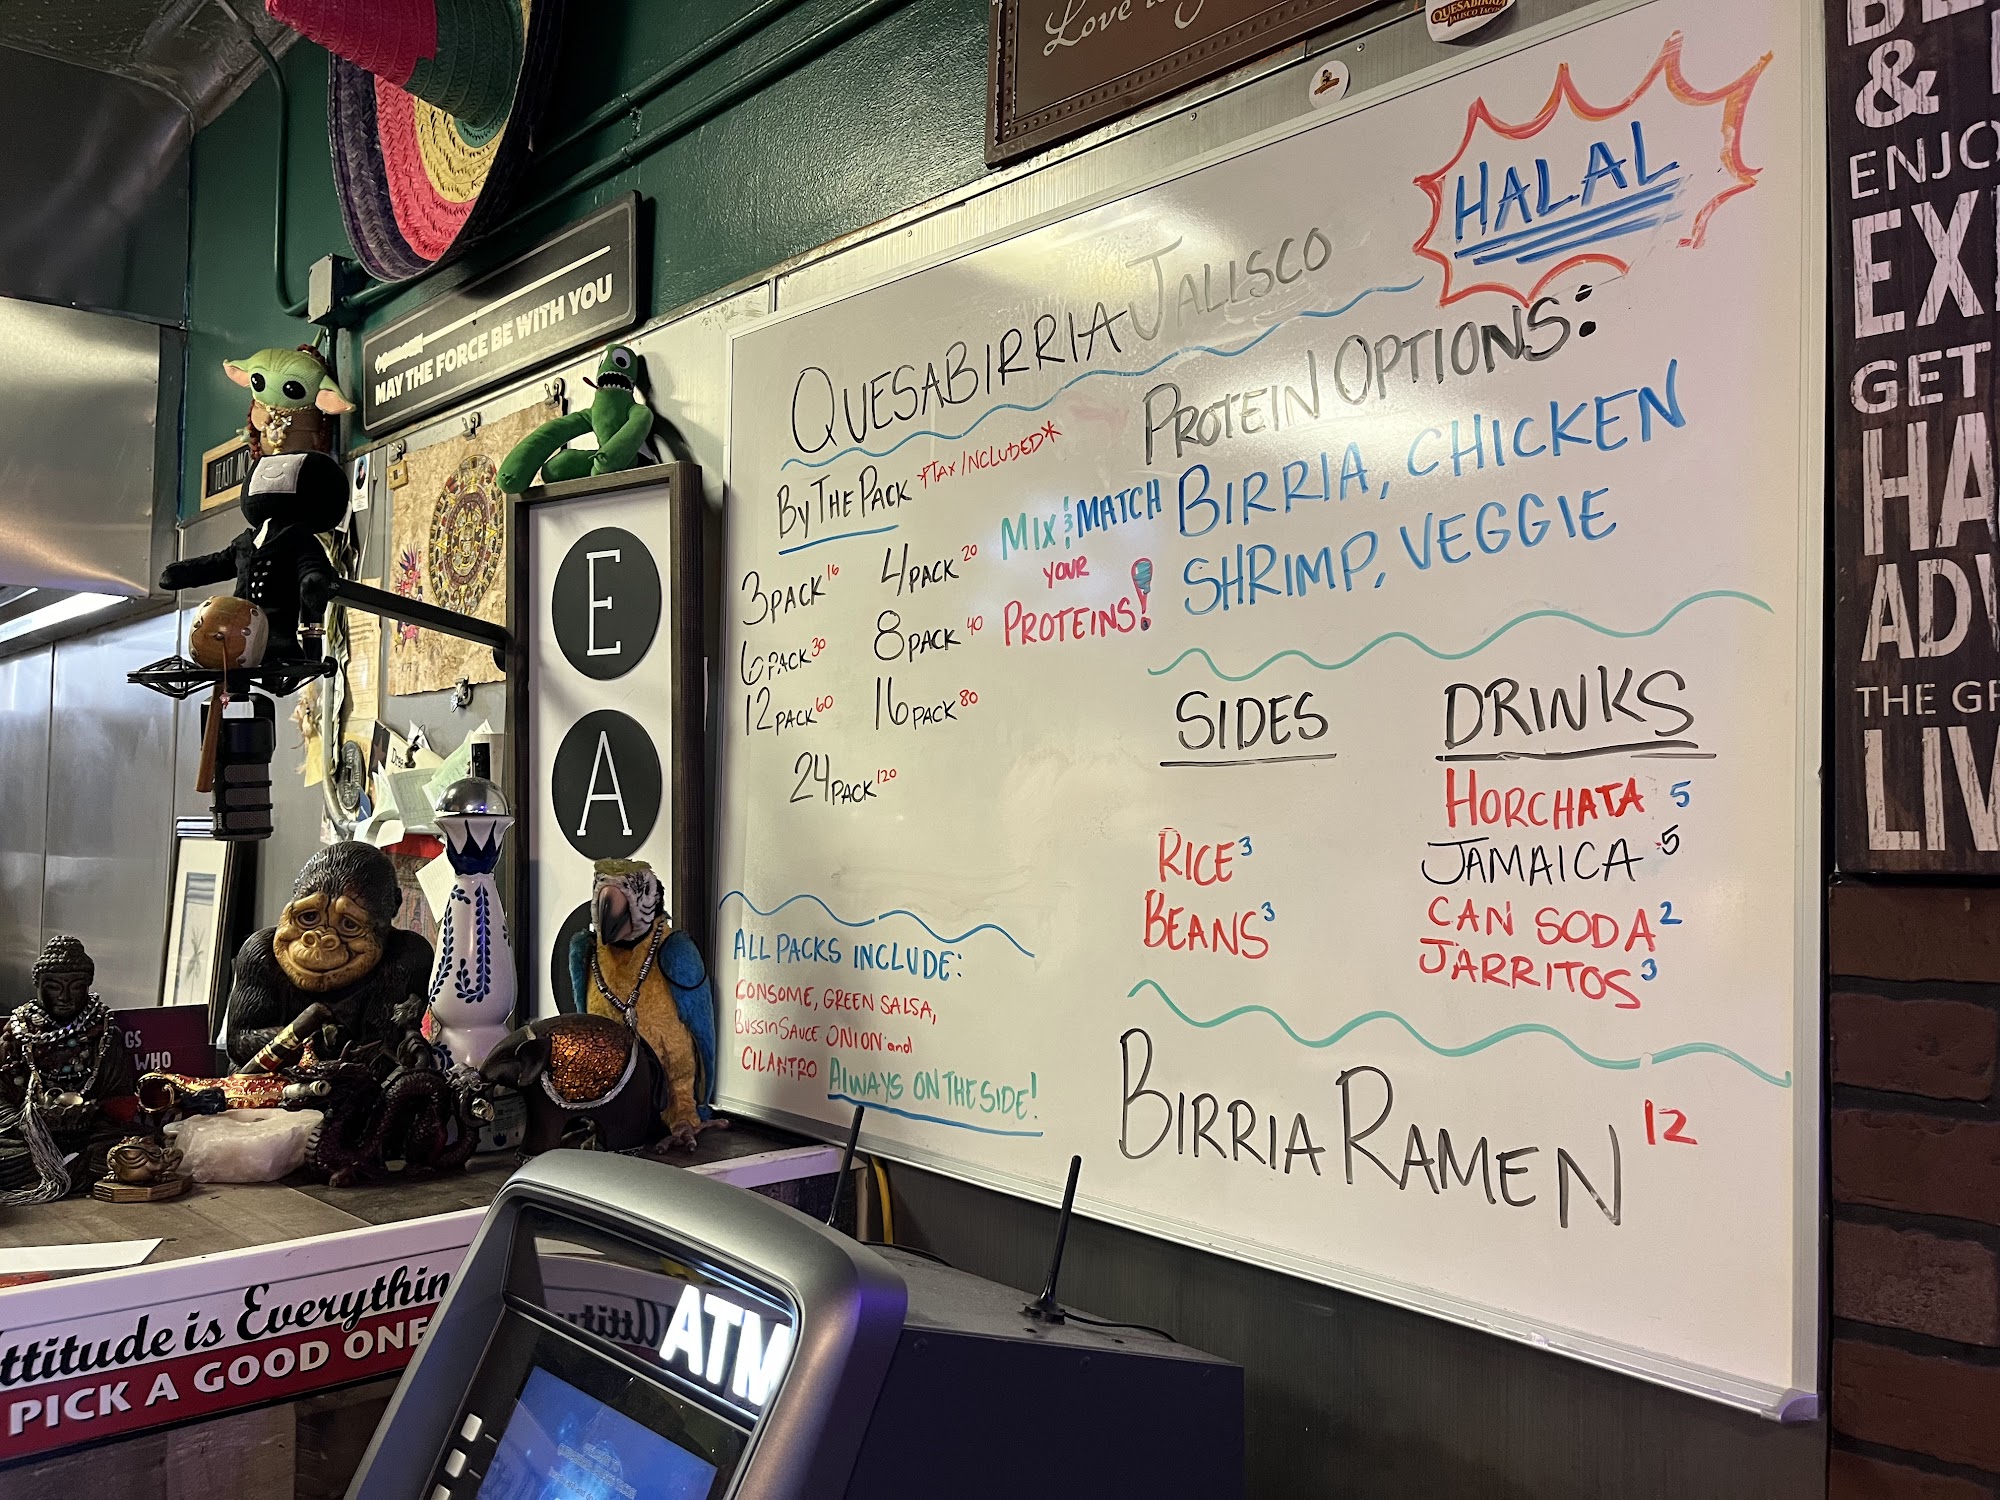 Love
QUESABIRRIA
JALISCO TACOS
HALAL
QUESABIRRIA JALISCO
BY THE PACK *TAX INCLUDED*
3 PACK 16
4 PACK 20
6 PACK 30
8 PACK 40
12 PACK 60
16 PACK 80
24 PACK 120
MIX & MATCH
YOUR
PROTEINS!
PROTEIN OPTIONS:
BIRRIA, CHICKEN
SHRIMP, VEGGIE
SIDES
RICE 3
BEANS 3
DRINKS
HORCHATA 5
JAMAICA 5
CAN SODA 2
JARRITOS 3
ALL PACKS INCLUDE:
CONSOME, GREEN SALSA,
BUSSIN SAUCE ONION and
CILANTRO ALWAYS ON THE SIDE!
BIRRIA RAMEN 12
MAY THE FORCE BE WITH YOU
E
A
GS
WHO
ttitude is Everythin
PICK A GOOD ONE
ATM
&
ENJO
EX
GET
HA
ADV
THE GR
LIV